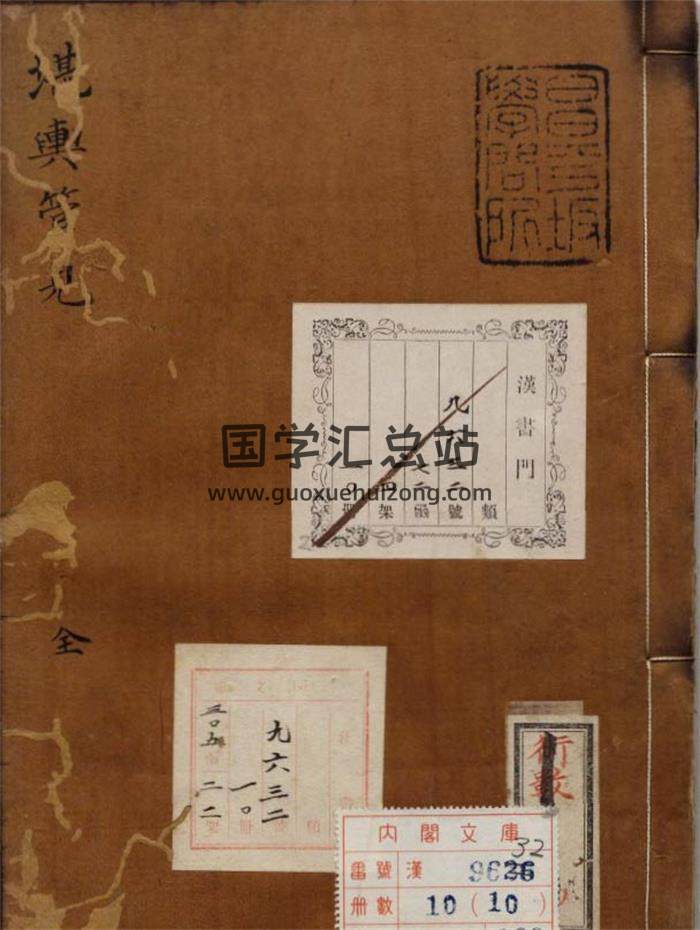 堪輿管見
全
昌平坂
學問所
漢書門
類
八 二號
函
架
冊
国学汇总站
www.guoxuehuizong.com
九六三二
一〇冊
二二架
三〇五
術數
內閣文庫
番號 漢 9626
32
冊數 10(10)